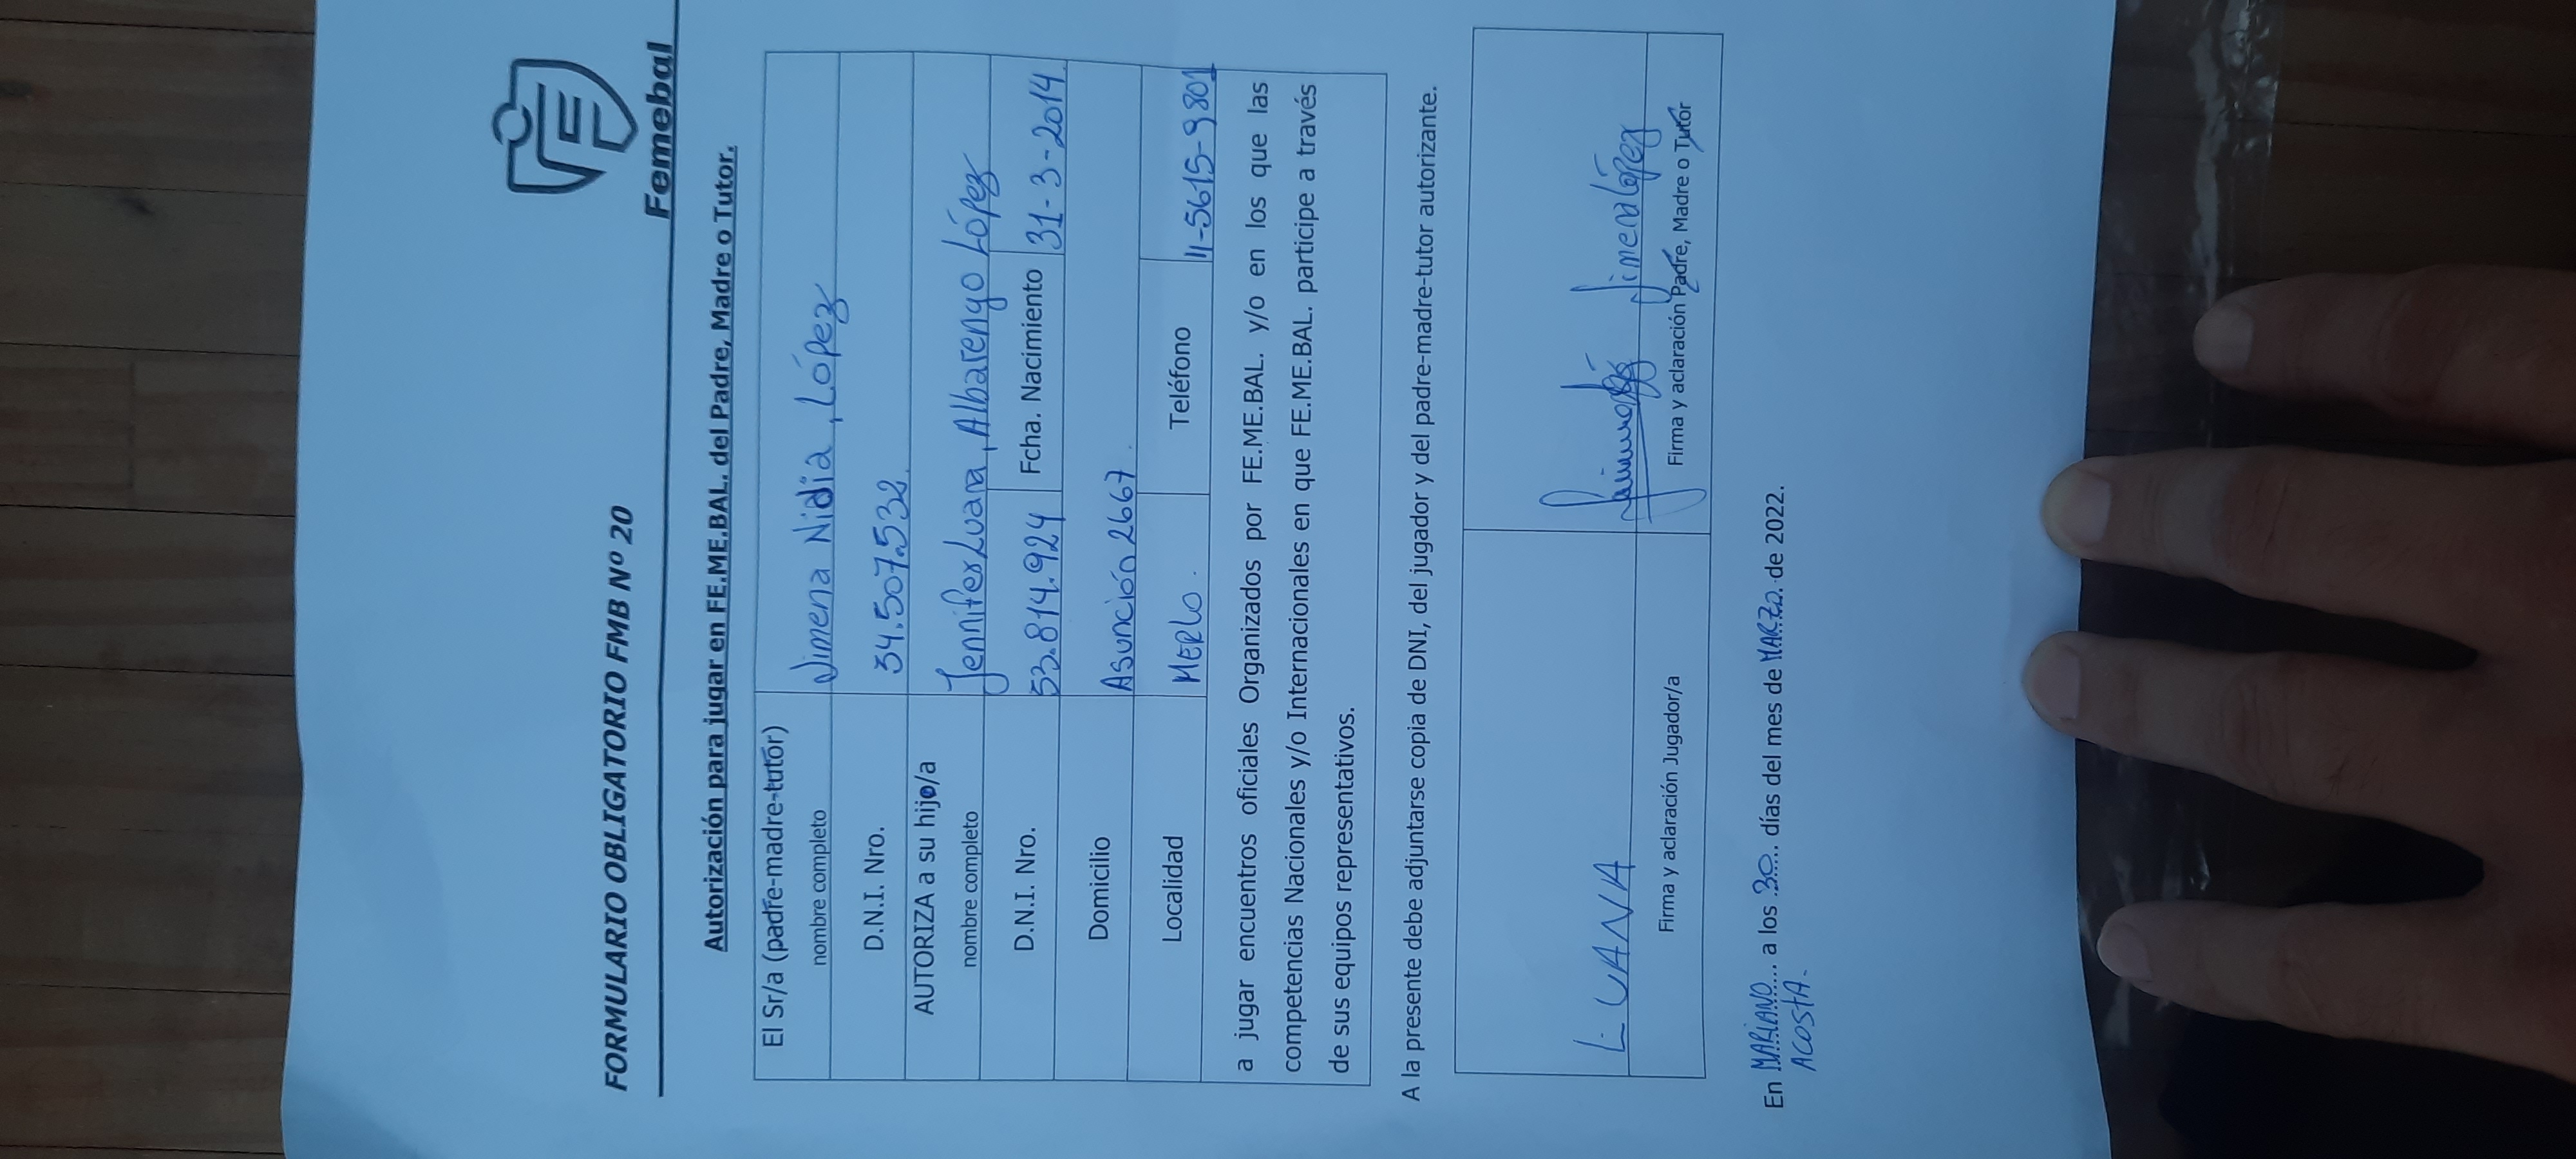 Femebal
FORMULARIO OBLIGATORIO FMB Nº 20
Autorización para jugar en FE.ME.BAL. del Padre, Madre o Tutor.
El Sr/a (padre-madre-tutor)
nombre completo
Jimena Nidia, López
D.N.I. Nro. 34.507.532.
AUTORIZA a su hijo/a
nombre completo
Jennifer Luana, Albarengo López
D.N.I. Nro. 53.814.924 Fcha. Nacimiento 31-3-2014.
Domicilio Asunción 2667.
Localidad MERLO. Teléfono 11-5615-9801
a jugar encuentros oficiales Organizados por FE.ME.BAL. y/o en los que las
competencias Nacionales y/o Internacionales en que FE.ME.BAL. participe a través
de sus equipos representativos.
A la presente debe adjuntarse copia de DNI, del jugador y del padre-madre-tutor autorizante.
LUANA Jimena López
Firma y aclaración Jugador/a Firma y aclaración Padre, Madre o Tutor
En MARIANO a los 30 días del mes de MARZO de 2022.
ACOSTA.